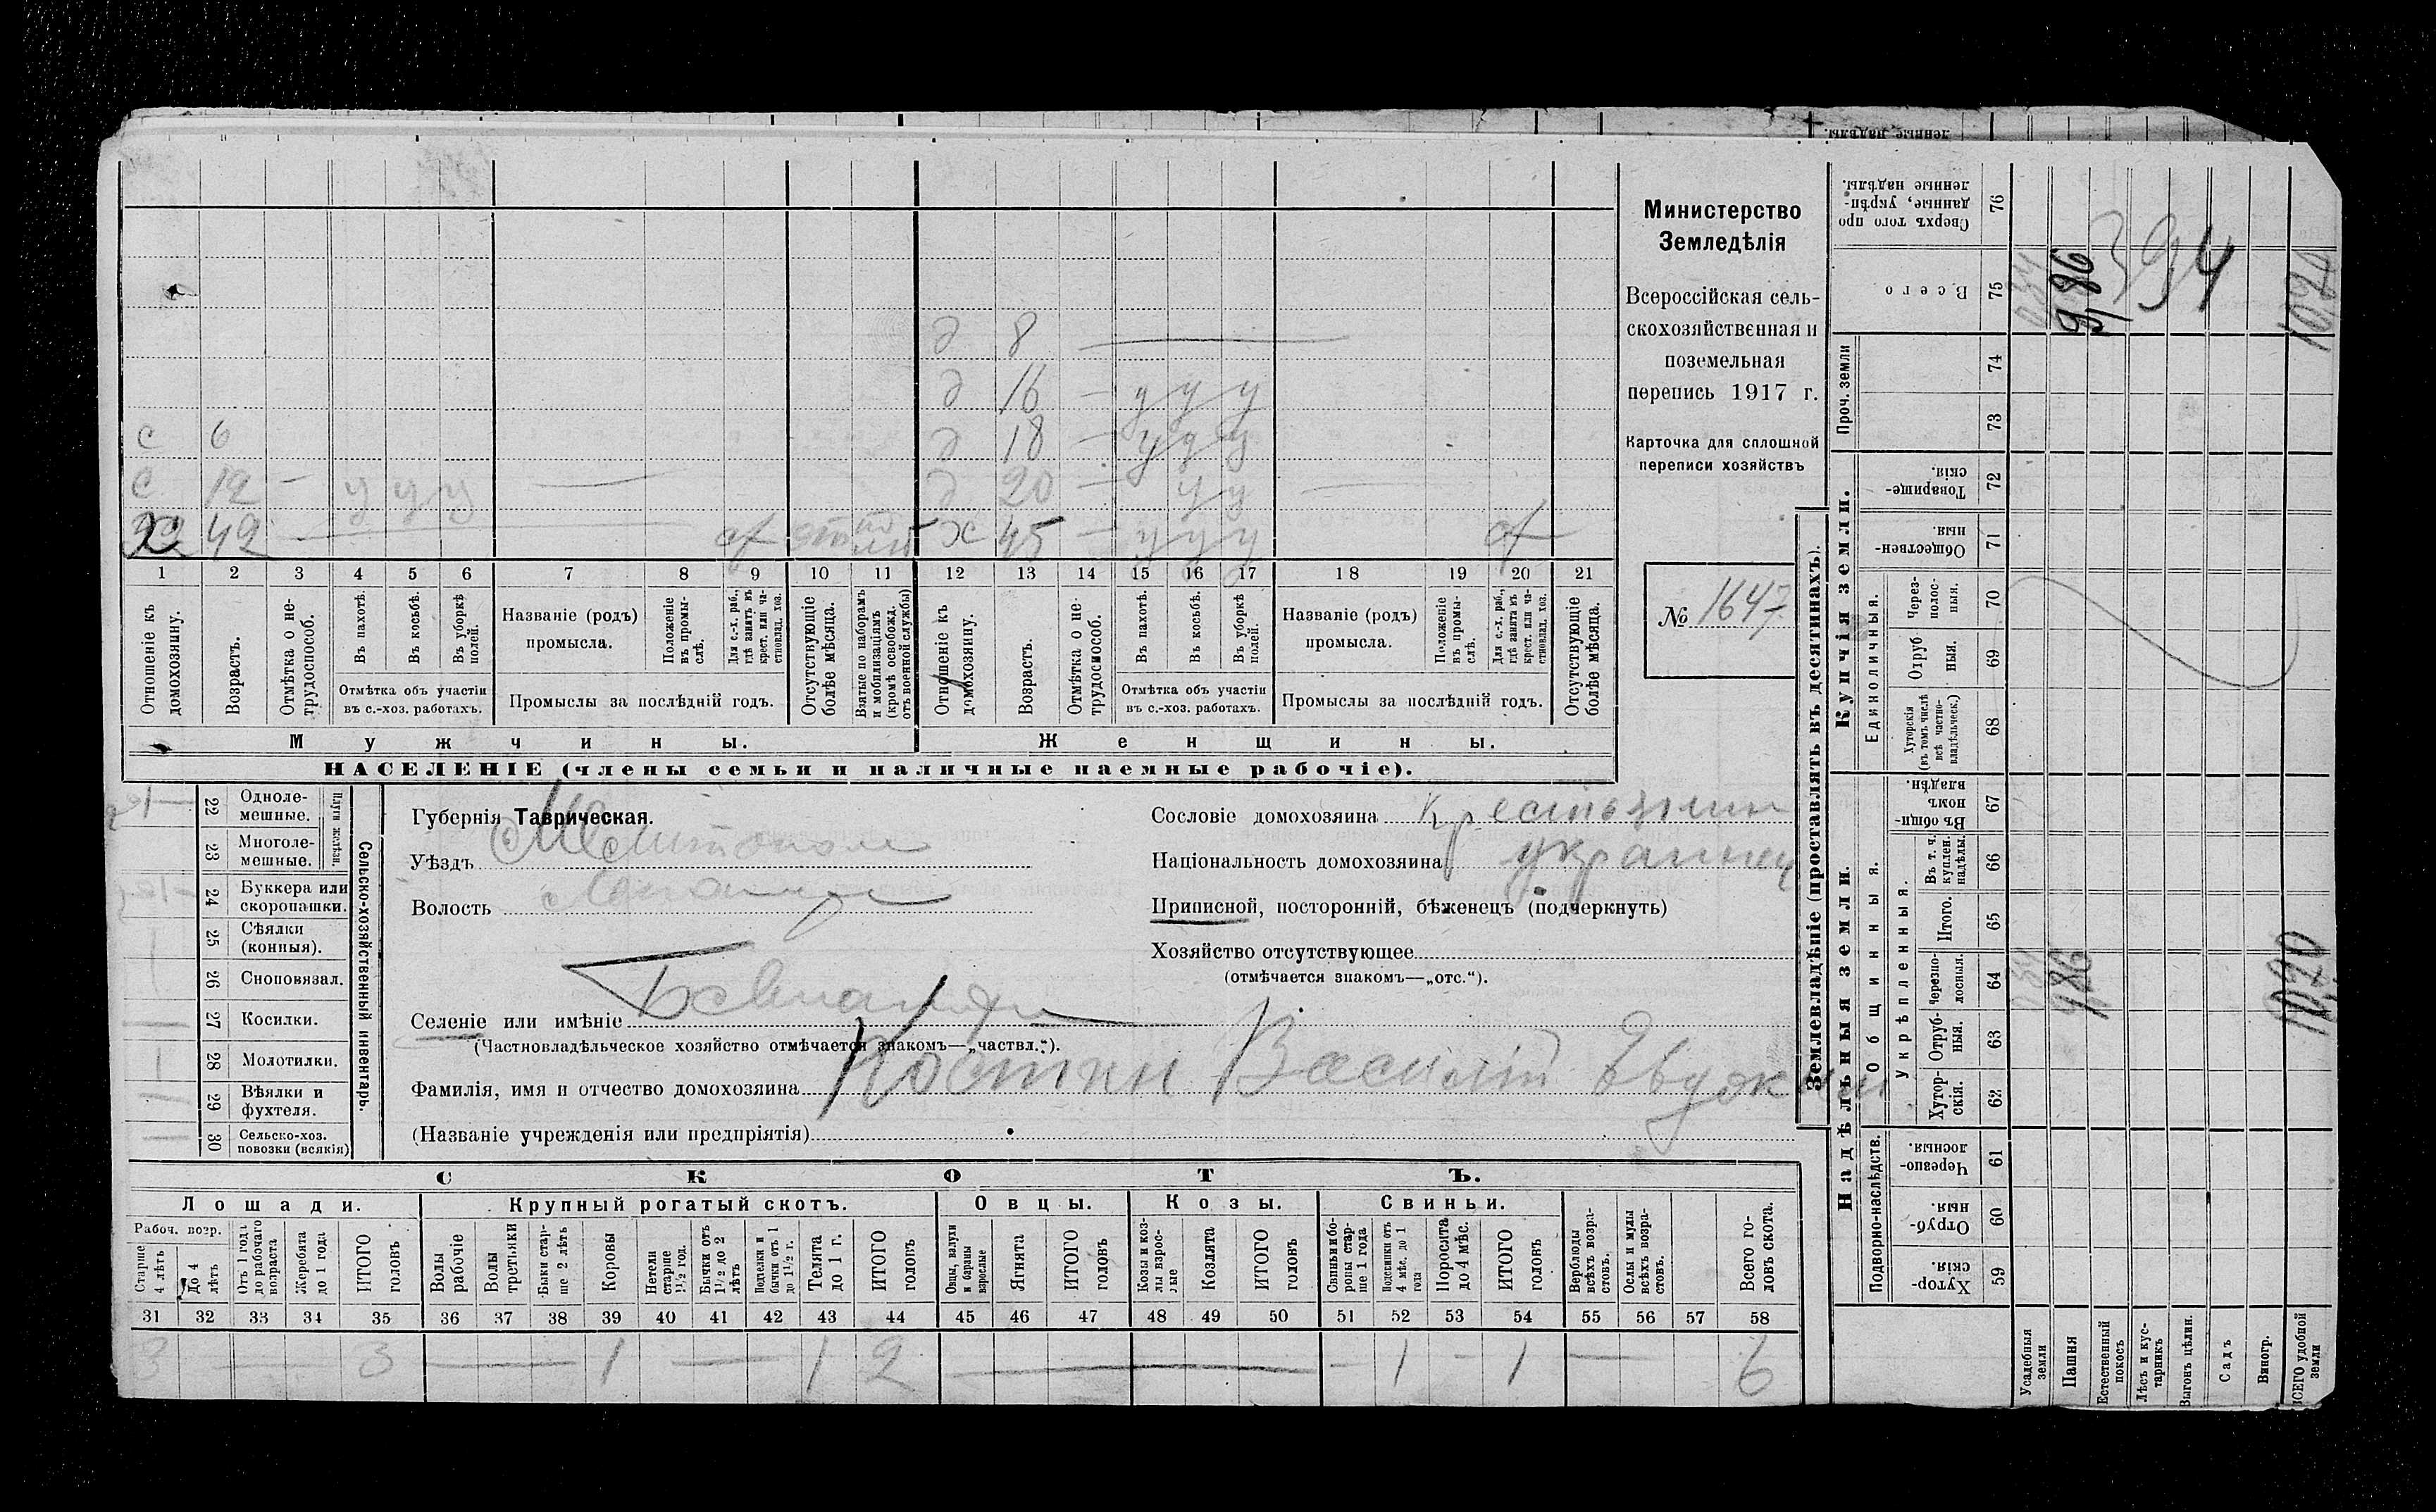 Министерство
Земледѣлія
Всероссійская сель-
скохозяйственная и
поземельная
перепись 1917 г.
Карточка для сплошной
переписи хозяйствъ
№ 1647
д 8
д 16 — у у у
с 6 д 18 — у у у
с 12 — у у у — д 20 — у у —
х 42 — х 45 — у у у
1 2 3 4 5 6 7 8 9 10 11 12 13 14 15 16 17 18 19 20 21
Отношеніе къ домохозяину.
Возрастъ.
Отмѣтка о не-трудоспособ.
Въ пахотѣ.
Въ косьбѣ.
Въ уборкѣ полей.
Отмѣтка объ участіи
въ с.-хоз. работахъ.
Названіе (родъ)
промысла.
Положеніе въ промы-слѣ.
Для с.-х. раб., гдѣ занятъ въ крест. или ча-стновлад. хоз.
Промыслы за послѣдній годъ.
Отсутствующіе болѣе мѣсяца.
Взятые по наборамъ и мобилизаціямъ (кромѣ освобожд. отъ военной службы)
Отношеніе къ домохозяину.
Возрастъ.
Отмѣтка о не-трудоспособ.
Въ пахотѣ.
Въ косьбѣ.
Въ уборкѣ полей.
Отмѣтка объ участіи
въ с.-хоз. работахъ.
Названіе (родъ)
промысла.
Положеніе въ промы-слѣ.
Для с.-х. раб., гдѣ занятъ въ крест. или ча-стновлад. хоз.
Промыслы за послѣдній годъ.
Отсутствующіе болѣе мѣсяца.
Мужчины. Женщины.
НАСЕЛЕНІЕ (члены семьи и наличные наемные рабочіе).
Сельско-хозяйственный инвентарь.
Плуги желѣзн.
22 Одноле-мешные. 1
23 Многоле-мешные.
24 Буккера или скоропашки. 1
25 Сѣялки (конныя).
26 Сноповязал.
27 Косилки.
28 Молотилки.
29 Вѣялки и фухтеля.
30 Сельско-хоз. повозки (всякія)
Губернія Таврическая.
Уѣздъ Мелитопол
Волость
Селеніе или имѣніе
(Частновладѣльческое хозяйство отмѣчается знакомъ—„частвл.“).
Фамилія, имя и отчество домохозяина Костин Василій Евдоким
(Названіе учрежденія или предпріятія)
Сословіе домохозяина крестьянин
Національность домохозяина украинец
Приписной, посторонній, бѣженецъ (подчеркнуть)
Хозяйство отсутствующее
(отмѣчается знакомъ—„отс.“).
СКОТЪ.
Лошади. Крупный рогатый скотъ. Овцы. Козы. Свиньи.
Рабоч. возр.
Старше 4 лѣтъ
До 4 лѣтъ
Отъ 1 года до рабочаго возраста
Жеребята до 1 года
ИТОГО головъ
Волы рабочіе
Волы третьяки
Быки стар-ше 2 лѣтъ
Коровы
Нетели старше 1½ год.
Бычки отъ 1½ до 2 лѣтъ
Подтелки и бычки отъ 1 до 1½ г.
Телята до 1 г.
ИТОГО головъ
Овцы, валухи и бараны взрослые
Ягнята
ИТОГО головъ
Козы и коз-лы взрос-лые
Козлята
ИТОГО головъ
Свиньи и бо-ровы стар-ше 1 года
Подсвинки отъ 4 мѣс. до 1 года
Поросята до 4 мѣс.
ИТОГО головъ
Верблюды всѣхъ возра-стовъ.
Ослы и мулы всѣхъ возра-стовъ.
Всего го-ловъ скота.
31 32 33 34 35 36 37 38 39 40 41 42 43 44 45 46 47 48 49 50 51 52 53 54 55 56 57 58
3 — 3 — 1 — 1 2 — — 1 — 1 — 6
Землевладѣніе (проставлять въ десятинахъ).
Надѣльныя земли. Купчія земли.
Подворно-наслѣдств.
Общинныя.
Укрѣпленныя.
Единоличныя.
Проч. земли
Хутор-скія. 59
Отруб-ныя. 60
Черезпо-лосныя. 61
Хутор-скія. 62
Отруб-ныя. 63
Черезпо-лосныя. 64
Итого. 65
Въ т. ч. куплен. надѣлы. 66
Въ общи-номъ владѣн. 67
Хуторскія (въ томъ числѣ всѣ частно-владѣльческ.) 68
Отруб ныя. 69
Через-полос-ныя. 70
Обществен-ныя. 71
Товарище-скія. 72
73
74
Всего 75
Сверхъ того про данные, укрѣп-ленные надѣлы. 76
Усадебныя земли 0,34 0,34
Пашня 9,86 9,86
Естественный покосъ
Лѣсъ и кус-тарникъ
Выгонъ цѣлин.
Садъ
Виногр.
ВСЕГО удобной земли 10,20 10,20
394